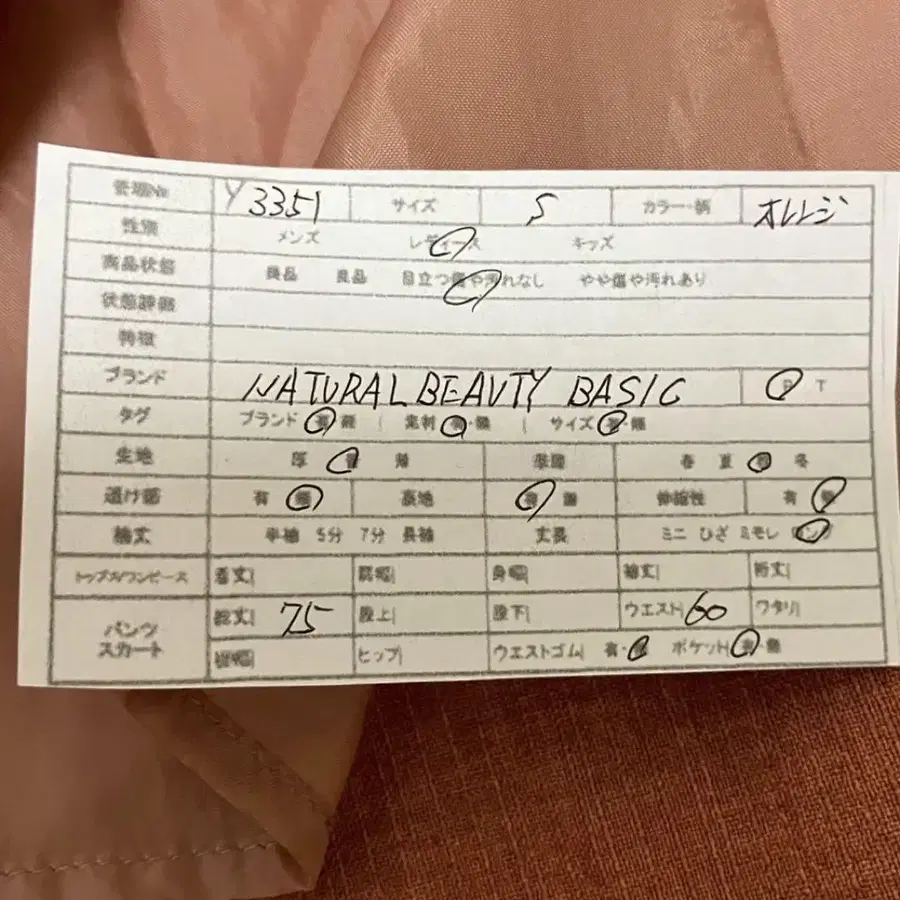 管理No Y3351 サイズ S カラー・柄 オレンジ
性別 メンズ レディース キッズ
商品状態 美品 良品 目立つ傷や汚れなし やや傷や汚れあり
状態詳細
特徴
ブランド NATURAL BEAUTY BASIC T
タグ ブランド 有・無 | 素材 有・無 | サイズ 有・無
生地 厚 薄 季節 春 夏 秋 冬
透け感 有 無 裏地 有 無 伸縮性 有 無
袖丈 半袖 5分 7分 長袖 丈長 ミニ ひざ ミモレ ロング
トップス/ワンピース 着丈| 肩幅| 身幅| 袖丈| 裄丈|
パンツ スカート 総丈| 75 股上| 股下| ウエスト| 60 ワタリ|
裾幅| ヒップ| ウエストゴム| 有・無 ポケット| 有・無